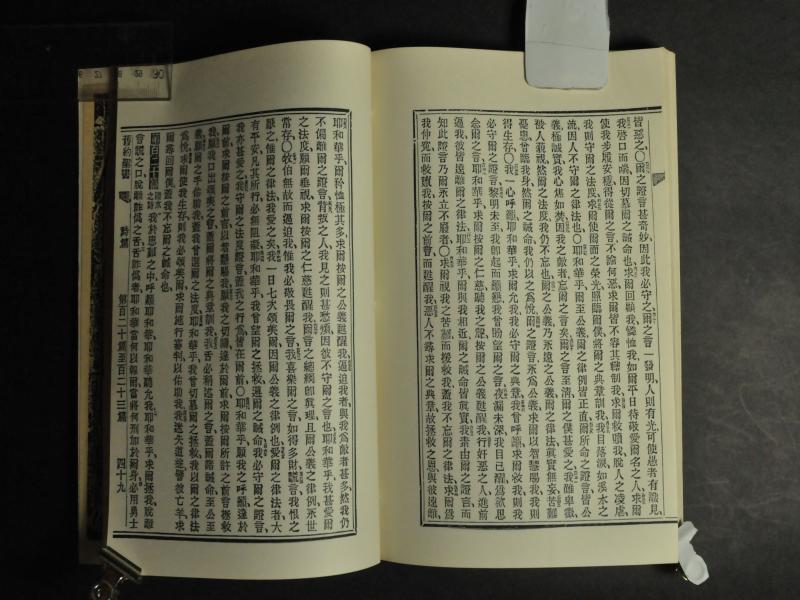 皆惡之〇爾之證言甚奇妙因此我必守之爾之言一發明人則有光可使愚者有識見
我啓口而喘因切慕爾之誡命也求爾回顧我憐恤我如爾平日待敬愛爾名之人求爾
使我步履安穩得從爾之言不論何惡求爾皆不容其轄制我求爾救贖我脫人之凌虐
我則守爾之法度求爾使爾面之榮光照臨爾僕將爾之典章訓我我目落淚如溪水之
流因人不守爾之律法也〇耶和華乎爾至公義爾之律例皆正直爾所命之證言皆公
義極誠實我心焦如焚因我之敵者忘爾之言矣爾之言至淸爾之僕甚愛之我雖卑微
被人藐視然爾之法度我仍不忘也爾之公義乃永遠之公義爾之律法眞實無妄苦難
憂患曾臨我身然爾之誡命我仍以之爲悅爾之證言永爲公義求爾以智慧賜我我則
得生存〇我一心呼籲耶和華求爾允我我必守爾之典章我曾呼籲求爾救我則我
必守爾之證言黎明未至我即起而籲懇我曾盼望爾之言夜漏未深我目已醒爲欲思
念爾之言耶和華乎求爾按爾之仁慈聽我之聲按爾之公義甦醒我行奸惡之人進前
逼我彼皆遠離爾之律法耶和華乎爾與我相近爾之誡命皆眞實我素由爾之證言而
知此證言乃爾永立不廢者〇求爾視我之苦難而極救我蓋我不忘爾之律法求爾爲
我伸冤而救贖我按爾之前言而甦醒我惡人不尋求爾之典章故拯救之恩與彼遠離
耶和華乎爾矜恤極其多求爾按爾之公義甦醒我逼迫我者與我爲敵者甚多然我仍
不偏離爾之證言背叛之人我見之則甚愁煩因彼不守爾之言也耶和華乎我甚愛爾
之法度願爾垂視求爾按爾之仁慈甦醒我爾言之總綱即眞理且爾公義之律例永世
常存〇牧伯無故而逼迫我惟我必敬畏爾之言我喜樂爾之言如得多財謊言我恨之
厭之惟爾之律法我愛之矣我一日七次頌美爾因爾公義之律例也愛爾之律法者大
有平安凡其所行必無阻礙耶和華乎我曾望爾之拯救遵爾之誡命我必守爾之證言
我亦甚愛之我守爾之法度證言蓋我之行爲皆在爾前〇耶和華乎願我之呼籲達於
爾前求爾按爾之前言以智慧賜我願我之切禱達於爾前求爾按爾所許之前言拯救
我願我口出頌美之言蓋爾將爾之典章訓我我舌必稱述爾之言蓋爾諸誡命至公至
義願爾之手佑助我蓋我曾選爾之法度耶和華乎我曾切慕爾之拯救我以爾之律法
爲悅求爾使我生存則我必頌美爾求爾施行審判以佑助我我迷失道途譬彼亡羊求
爾尋回爾僕蓋我不忘爾之誡命也
第百二十篇 我於患難之中呼籲耶和華耶和華聽允我耶和華乎求爾拯我脫離
言謊之口脫離詭僞之舌舌詐僞者耶和華當何以報爾當將何刑加於爾身必用勇士
舊約聖書 詩篇 第百二十篇至百二十三篇 四十九